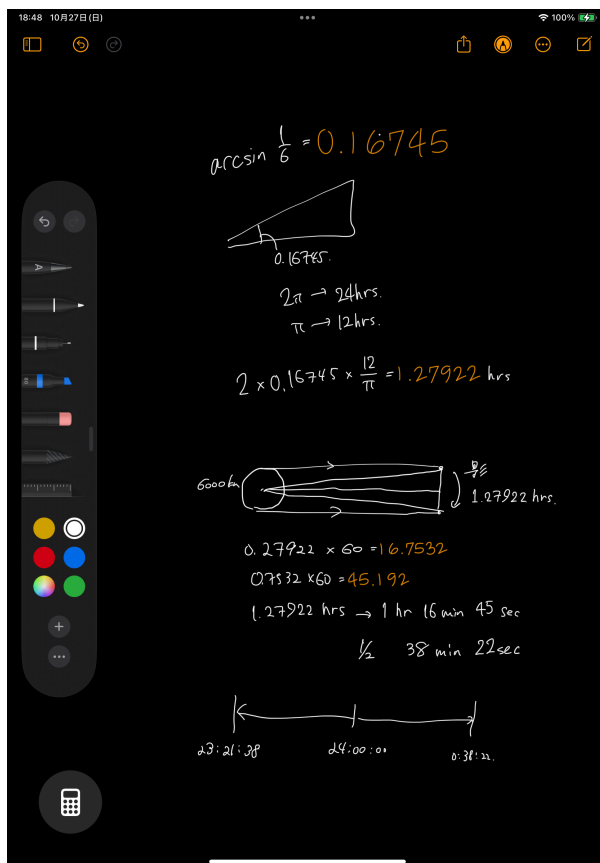 18:48 10月27日(日)
100%
arcsin 1/6 = 0.16745
0.16745.
2π → 24hrs.
π → 12hrs.
2 × 0.16745 × 12/π = 1.27922 hrs
6000km
1.27922 hrs.
0.27922 × 60 = 16.7532
0.7532 × 60 = 45.192
1.27922 hrs → 1 hr 16 min 45 sec
1/2 38 min 22 sec
23:21:38 24:00:00 0:38:22.